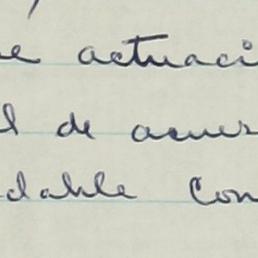 e actuaci
l de acuer
dable con